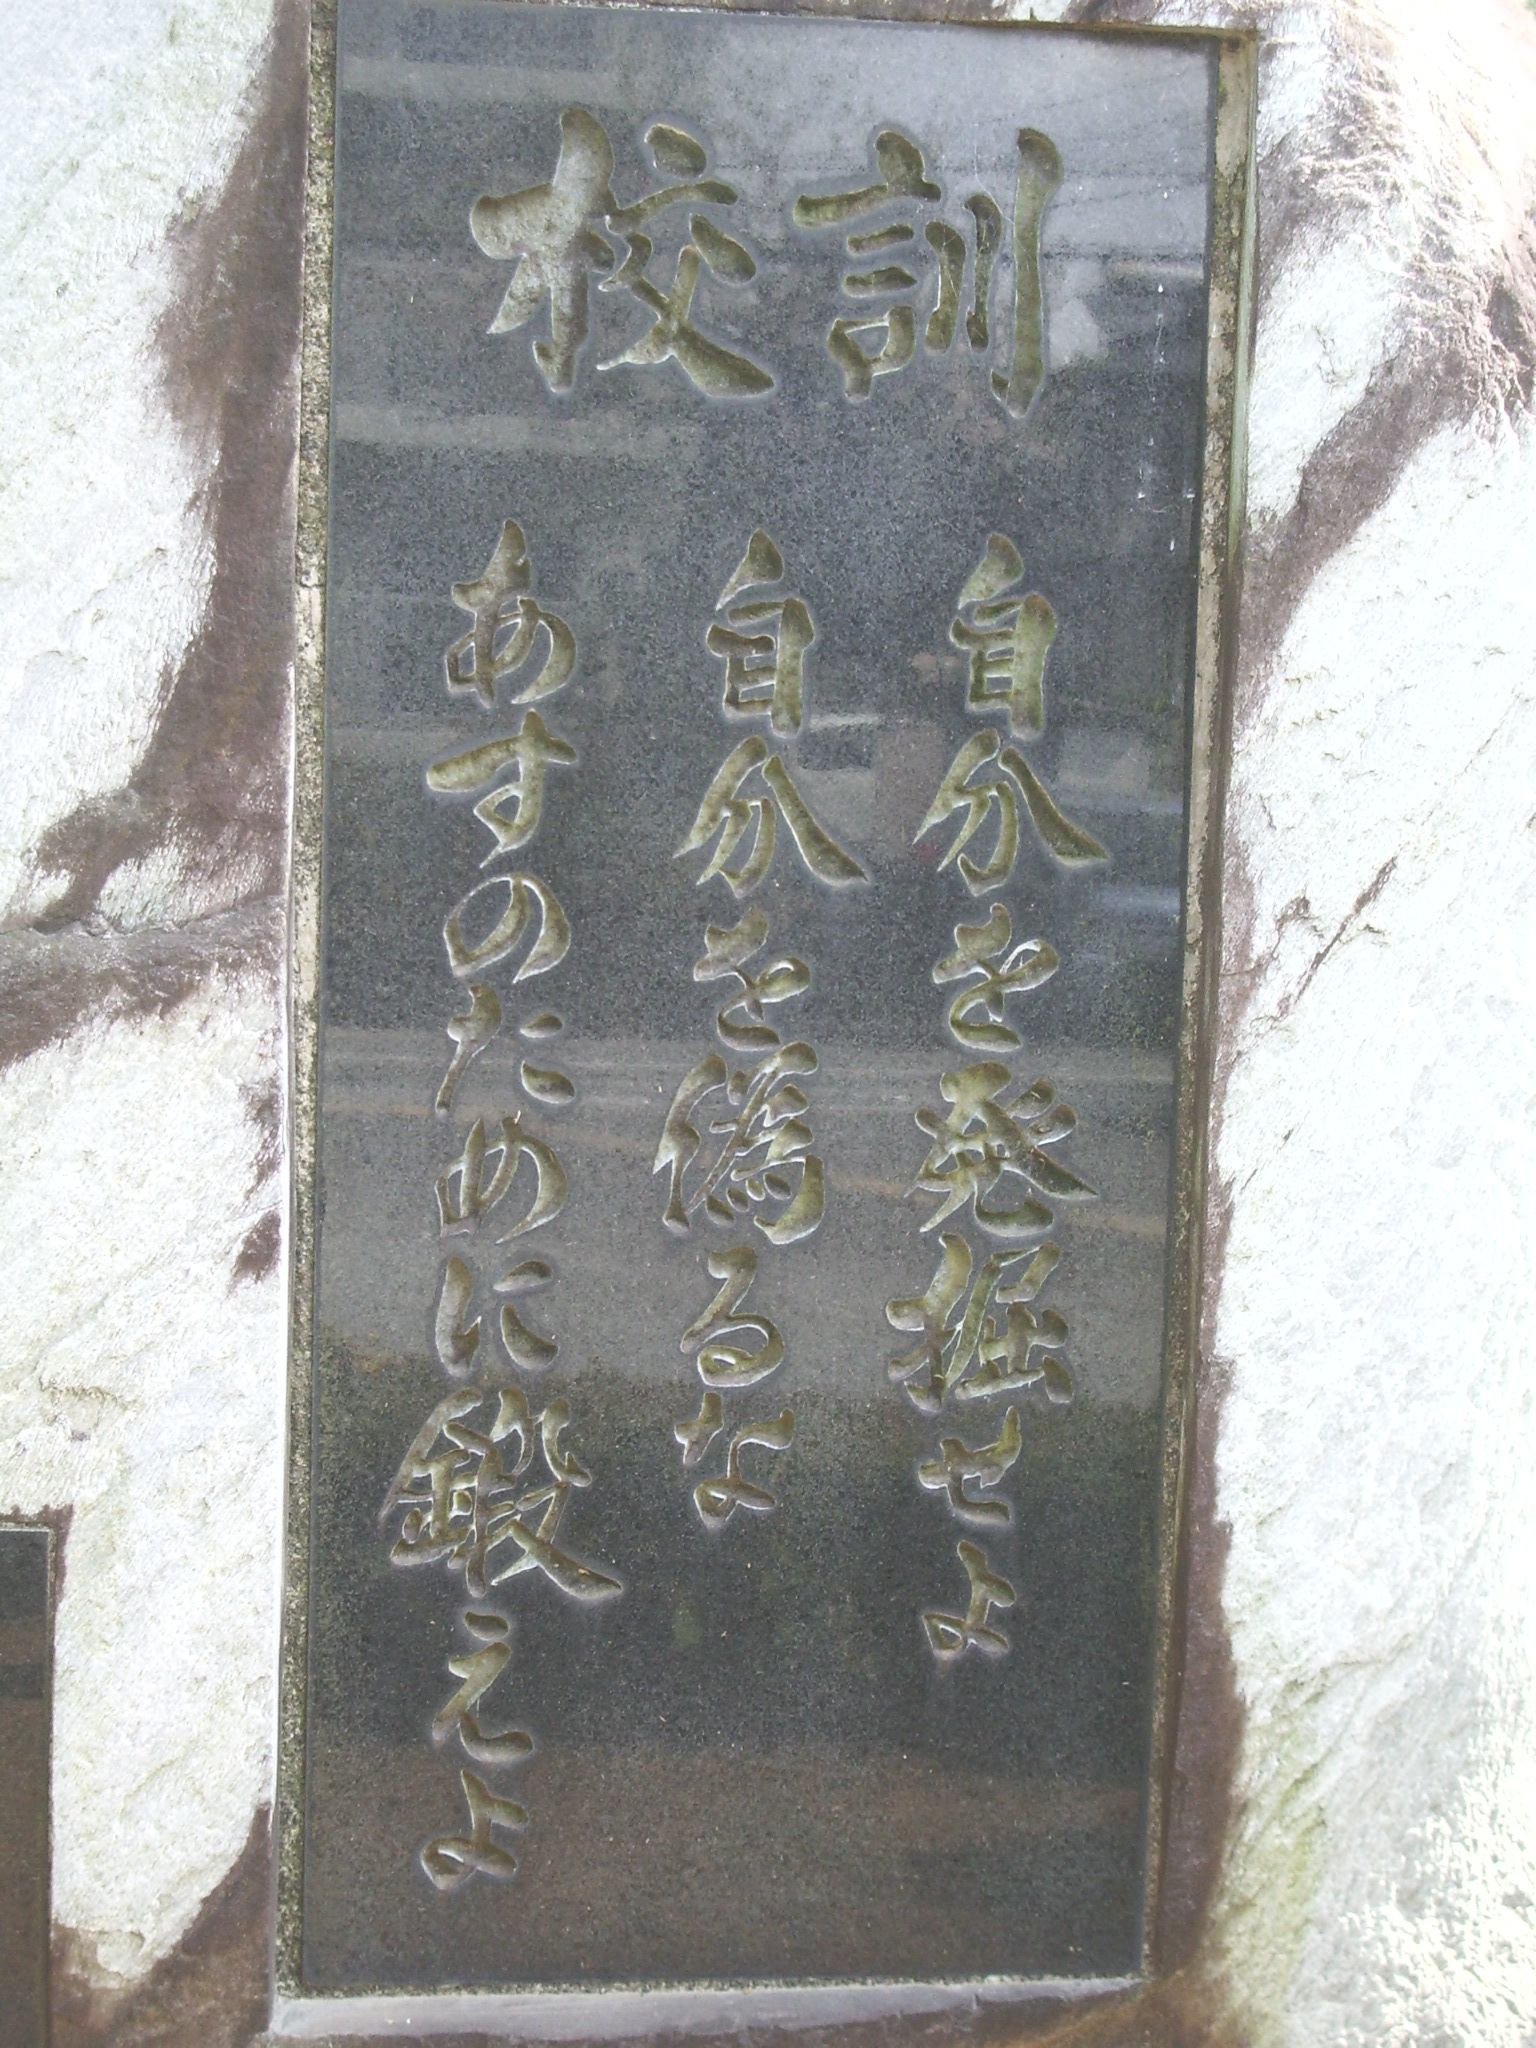 校訓
自分を発掘せよ
自分を偽るな
あすのために鍛えよ